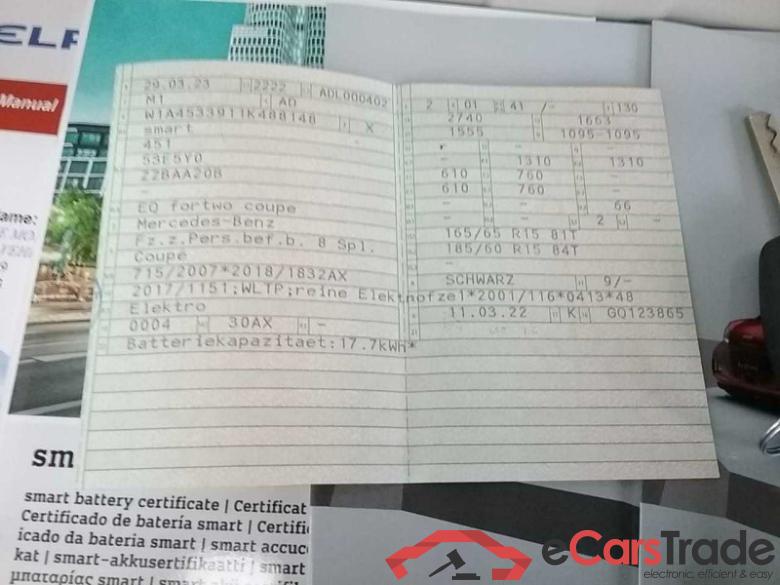 ELF
Manual
ame:
29.03.23 2222 ADL000402
M1 AD
W1A4533911K488148 X
smart
451
53F5Y0
ZZBAA20B
-
EQ fortwo coupe
Mercedes-Benz
Fz.z.Pers.bef.b. 8 Spl.
Coupé
715/2007*2018/1832AX
2017/1151;WLTP;reine Elektrofzel*2001/116*0413*48
Elektro
0004 30AX -
Batteriekapazitaet:17.7kWh*
2 01 41 /- 130
2740 1663
1555 1095-1095
- -
- 1310 1310
610 760 -
610 760 -
- - 66
- - 2 -
165/65 R15 81T
185/60 R15 84T
-
SCHWARZ 9/-
11.03.22 K GQ123865
sm
smart battery certificate | Certificat
Certificado de batería smart | Certifi
icado da bateria smart | smart accuc
kat | smart-akkusertifikaatti | smart
μπαταρίας smart | smart
eCarsTrade
electronic, efficient & easy